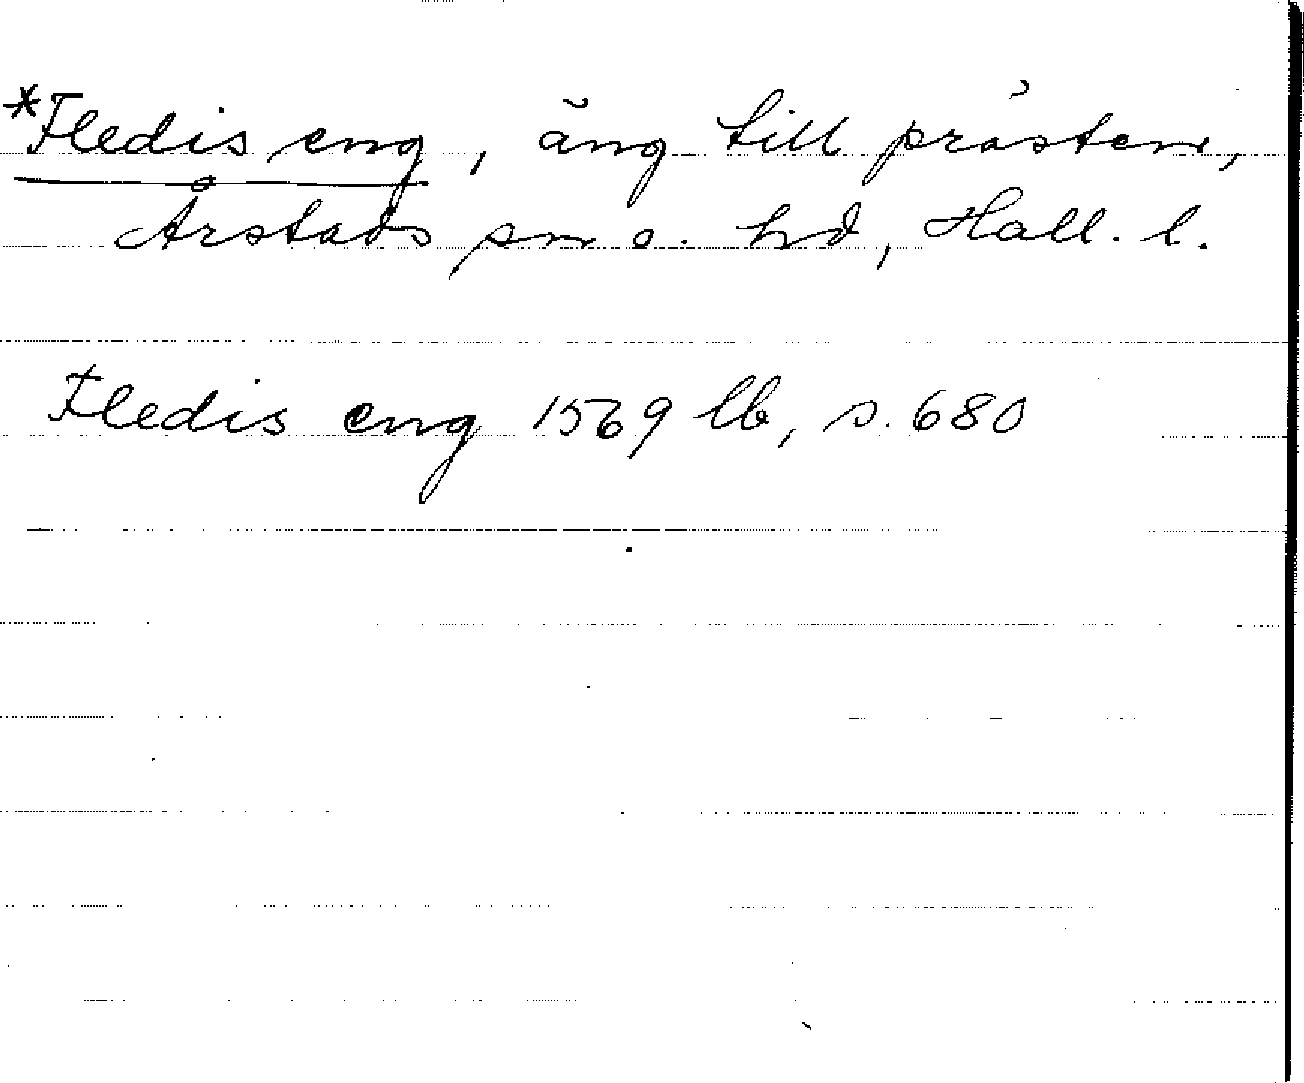 *Fledis eng, äng till prästen,
Årstads sn o. hd, Hall. l.
Fledis eng 1569 lb, s. 680